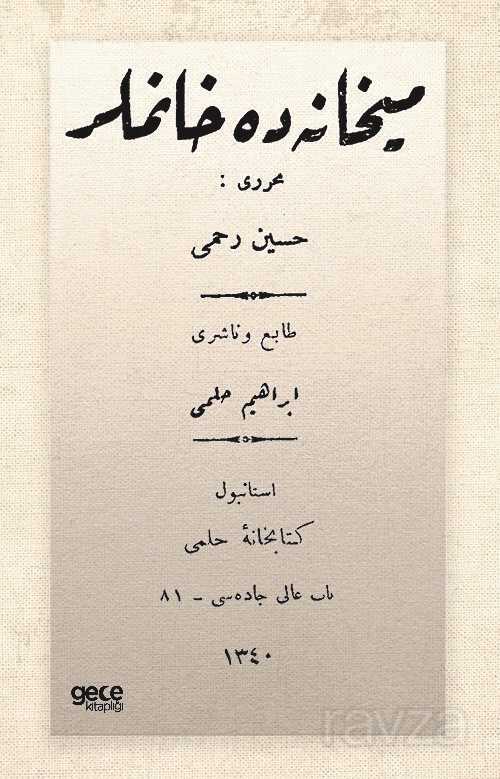 میخانه‌ده خانملر
محرری :
حسین رحمی
طابع و ناشری
ابراهیم حلمی
استانبول
کتابخانهٔ حلمی
باب عالی جاده‌سی - ٨١
١٣٤٠
gece
kitaplığı
ravza